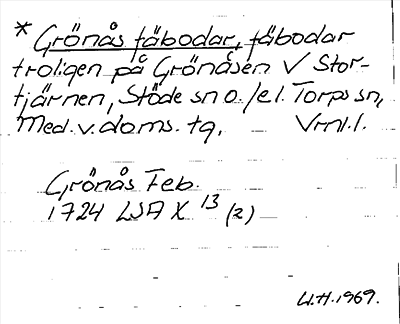 * Grönås fäbodar, fäbodar
troligen på Grönåsen V Stor-
tjärnen, Stöde sn o./el. Torps sn,
Med. v. doms. tg, Vrnl. l.
Grönås Feb.
1724 LSA X 13 (2)
U.H. 1969.